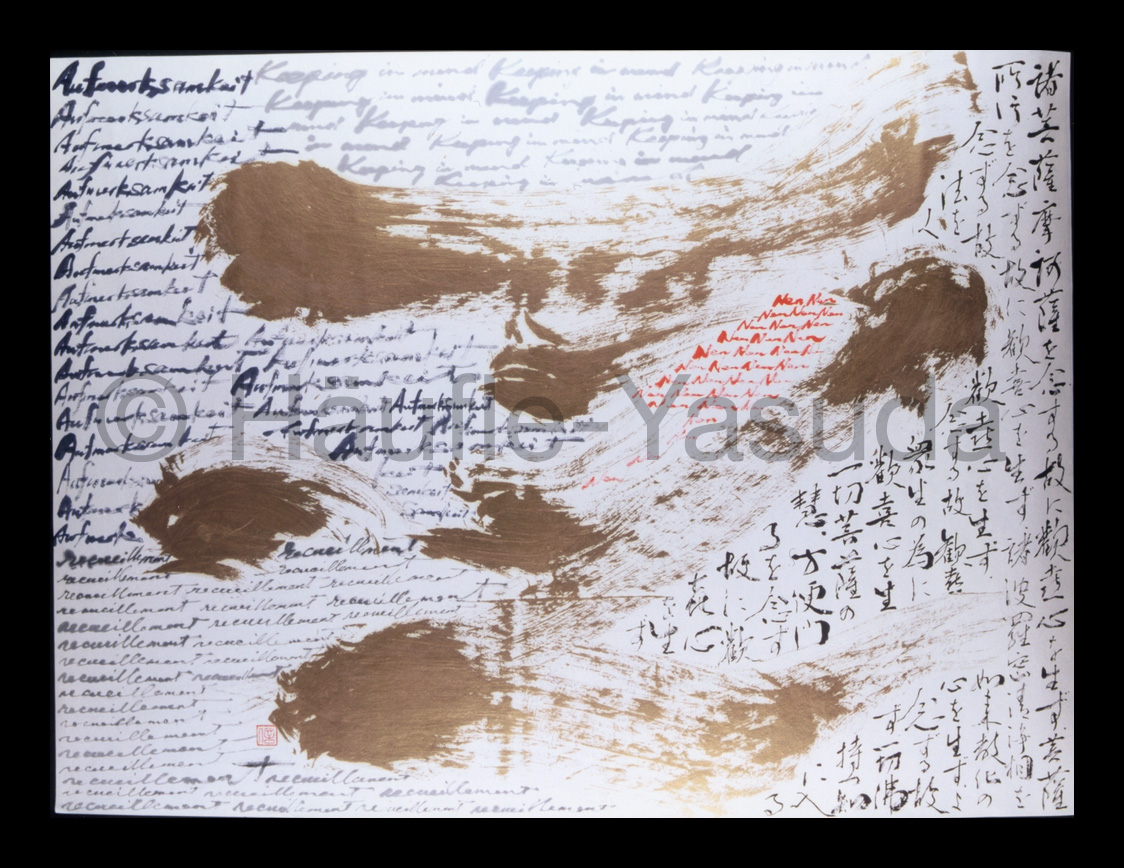 Aufmerksamkeit
Aufmerksamkeit
Aufmerksamkeit
Aufmerksamkeit
Aufmerksamkeit
Aufmerksamkeit
Aufmerksamkeit
Aufmerksamkeit
Aufmerksamkeit
Aufmerksamkeit
Aufmerksamkeit Aufmerksamkeit
Aufmerksamkeit Aufmerksamkeit
Aufmerksamkeit Aufmerksamkeit
Aufmerksamkeit Aufmerksamkeit Aufmerksamkeit
Aufmerksamkeit Aufmerksamkeit Aufmerksamkeit
Aufmerksamkeit
Keeping in mind Keeping in mind Keeping in mind
Keeping in mind Keeping in mind Keeping in
mind Keeping in mind Keeping in mind
in mind Keeping in mind Keeping in mind
Keeping in mind Keeping in mind
Keeping in mind
Nen Nen
Nen Nen Nen
Nen Nen Nen
Nen Nen Nen
Nen Nen Nen
Nen Nen Nen Nen
Nen Nen Nen Nen
Nen Nen Nen Nen
Nen
Nen
recueillement recueillement
recueillement recueillement
recueillement recueillement recueillement
recueillement recueillement recueillement
recueillement recueillement recueillement
recueillement recueillement
recueillement recueillement
recueillement recueillement
recueillement
recueillement
recueillement
recueillement
recueillement
recueillement
recueillement recueillement
recueillement recueillement recueillement
recueillement recueillement recueillement recueillement
諸菩薩摩訶薩を念ずる故に歓喜心を生ず菩薩
所行を念ずる故に歓喜心を生ず諸波羅密清浄相を
念ずる故
歓喜心を生ず
如来教化の
法を
念ずる故歓喜
心を生ず
人
衆生の為に
念ずる故
歓喜心を生
ず一切佛
一切菩薩の
慧方便門
に入
るを念ず
る
故に歓
喜心
を生
ず
© Häufle-Yasuda